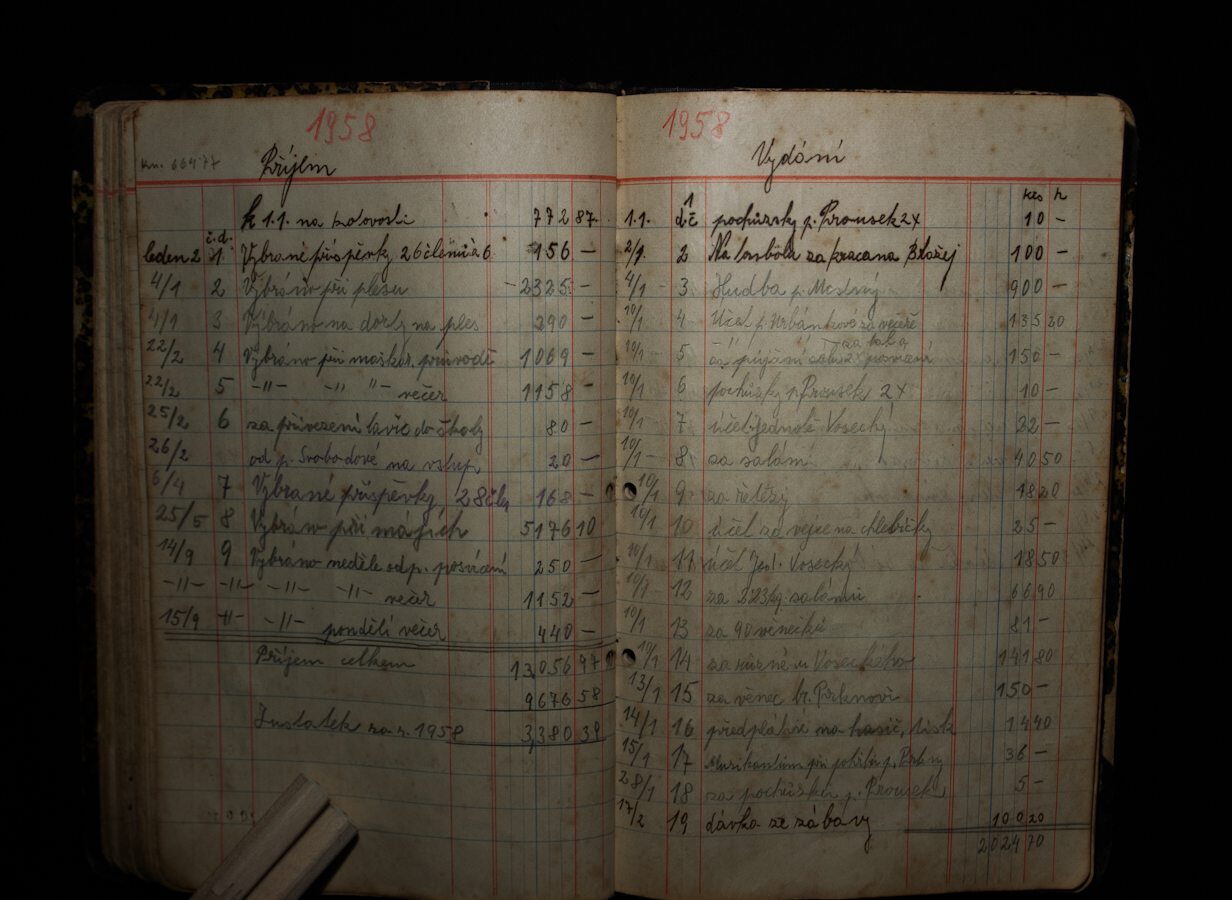 1958
Kn. 66477
Příjem
k 1.1. na hotovosti 772 87
č.d.
leden 2 1 Vybrané příspěvky 26 členů à 6 156 —
4/1 2 Vybráno při plesu 2325 —
4/1 3 Vybráno na dorty na ples 290 —
22/2 4 Vybráno při maškar. průvodě 1069 —
22/2 5 -"- -"- "- večer 1158 —
25/2 6 za přivezení lavic do školy 80 —
26/2 od p. Svobodové na vstup. 20 —
6/4 7 Vybrané příspěvky 28 čl. 168 —
25/5 8 Vybráno při májích 5176 10
14/9 9 Vybráno neděle odp. posvícení 250 —
-"- -"- -"- -"- večer 1152 —
15/9 -"- -"- pondělí večer 440 —
Příjem celkem 13,056 97
9676 58
Zustatek za r. 1958 3,380 39
1958
Vydání
Kčs h
1.1. 1 d.č. pochůzky p. Prousek 2x 10 —
2/1. 2 Na tombolu za 100 —
4/1 3 Hudba p. 900 —
10/1 4 Účet p. Urbánkové za večeře 135 20
10/1 5 za půjčení sálu 2x posvícení 150 —
10/1 6 pochůzky p. Prousek 2x 10 —
10/1 7 účet Jednota Vosecký 22 —
10/1 8 za salám 40 50
10/1 9 za řetězy 18 20
10/1 10 účet za vejce na chlebíčky 25 —
10/1 11 účet Jed. Vosecký 18 50
10/1 12 za kg. salámu 66 90
10/1 13 za 90 věnečků 81 —
10/1 14 za různé u Voseckého 141 80
13/1 15 za věnec br. 150 —
14/1 16 předplatné na hasič. tisk 14 40
15/1 17 Muzikantům při pohřbu p. 36 —
28/1 18 za pochůzku p. Prousek 5 —
17/2 19 dávka ze zábavy 100 20
2024 70